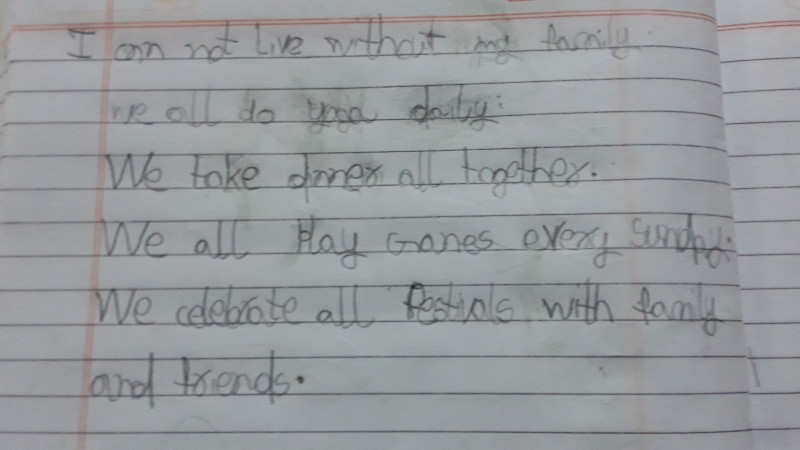 I can not live without my family.
we all do yoga daily.
We take dinner all together.
We all Play Games every Sunday.
We celebrate all festivals with family
and friends.